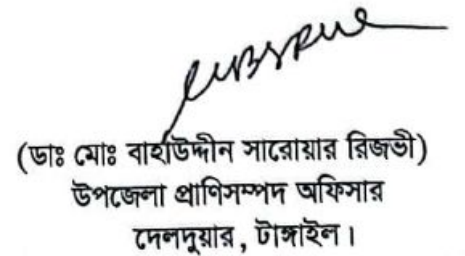 (ডাঃ মোঃ বাহাউদ্দীন সারোয়ার রিজভী)
উপজেলা প্রাণিসম্পদ অফিসার
দেলদুয়ার, টাঙ্গাইল।